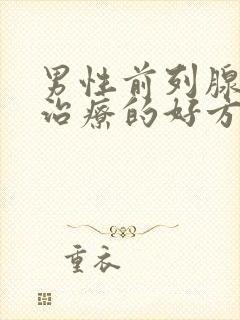 男性前列腺
治療的好方
重衣